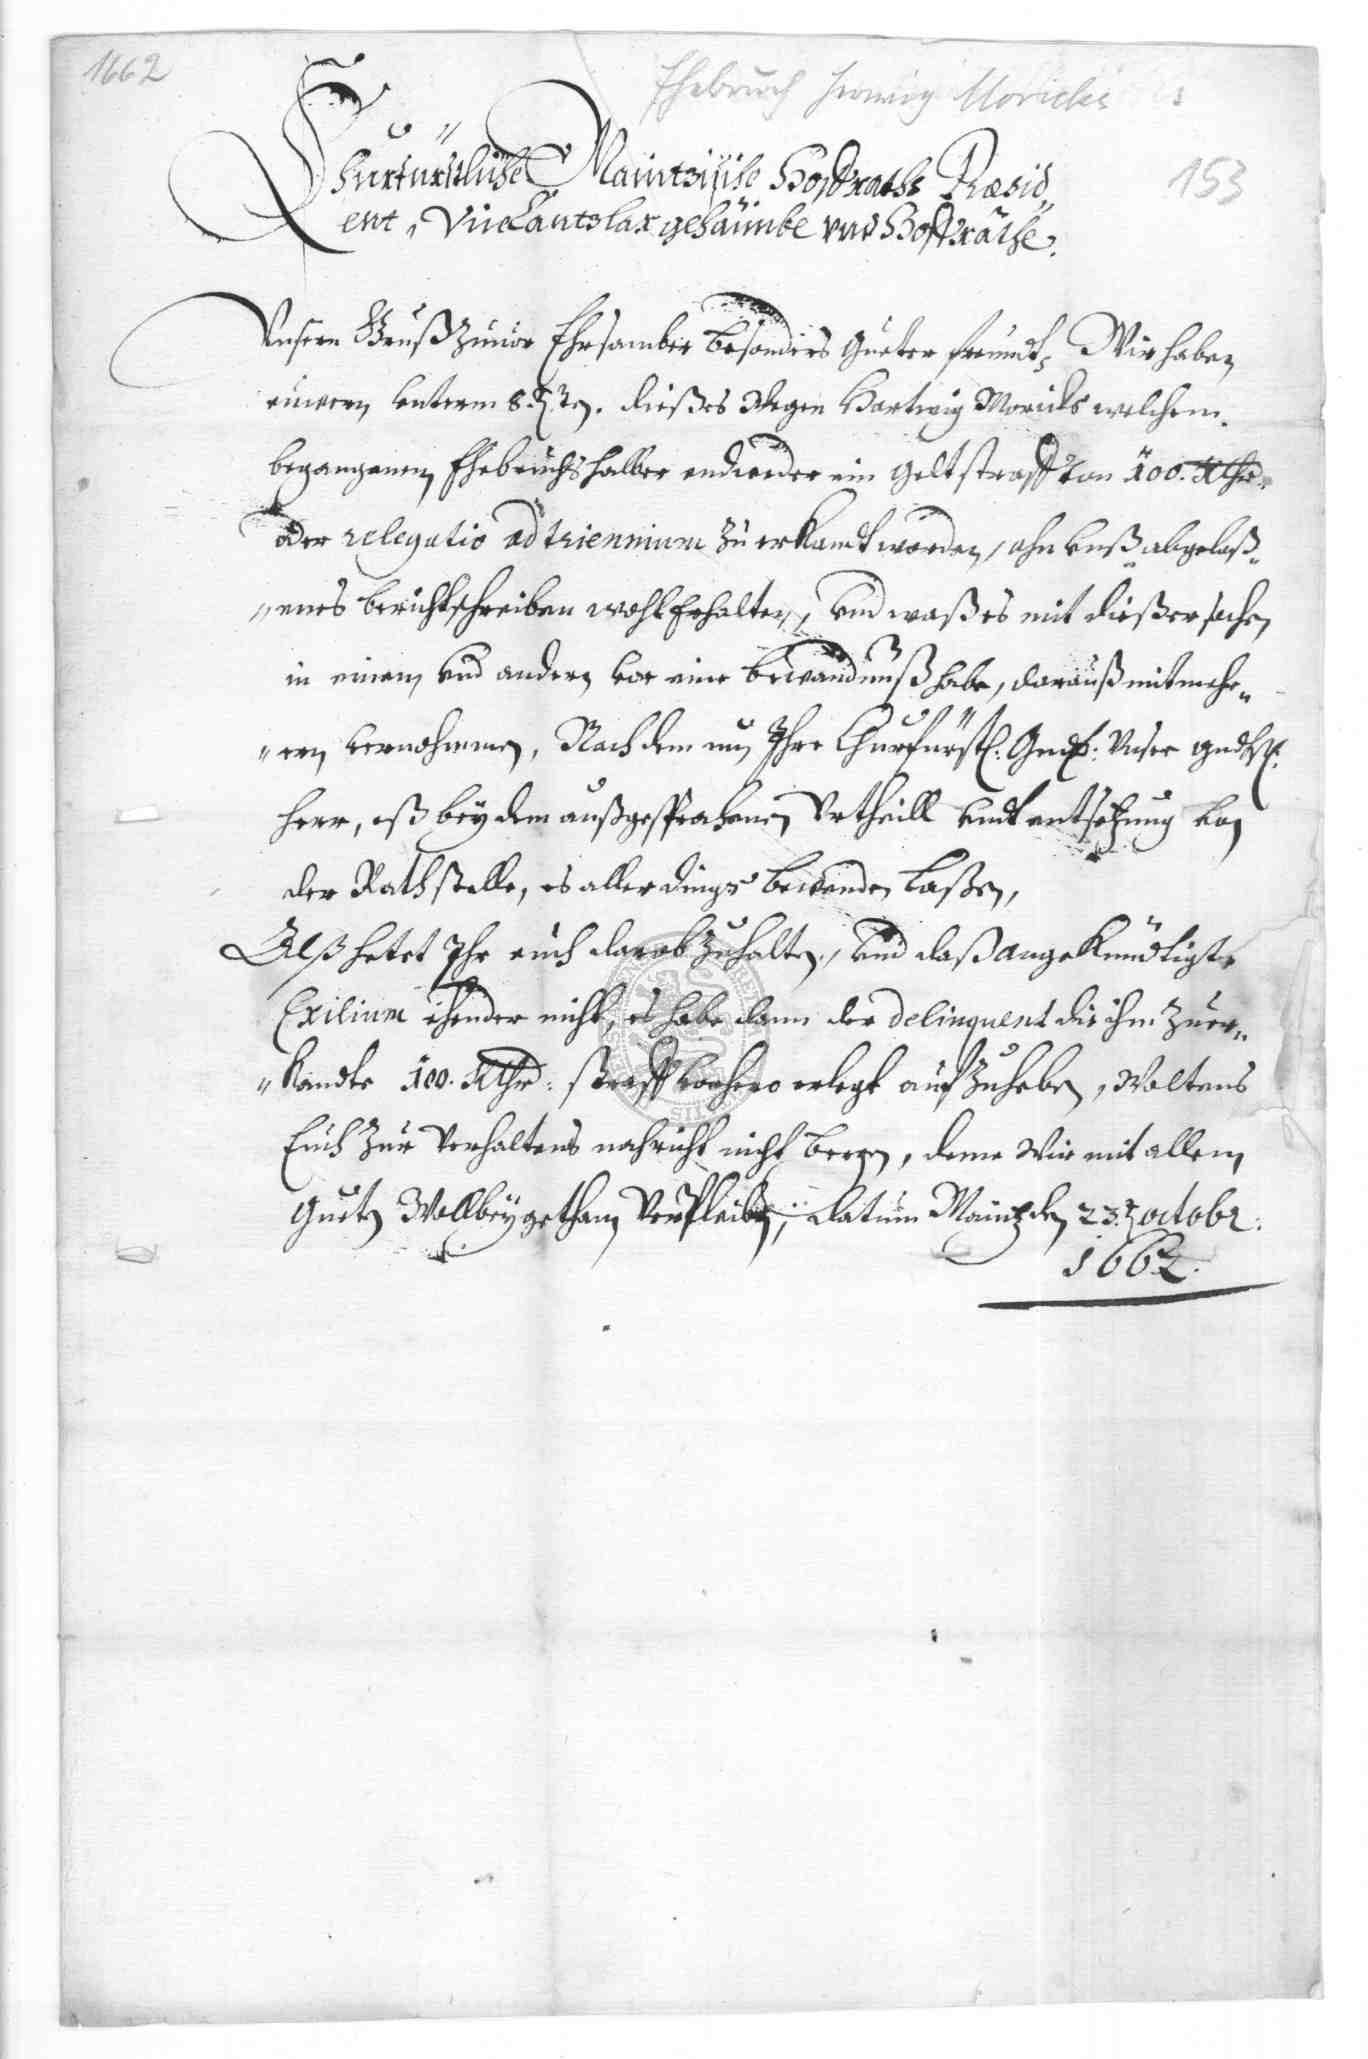 1662
Ehebruch Herwig Moricks
153
Churfürstliche Maintzische Hoffraths Præsid„
ent, Vice Cantzlar gehaimbe vnd Hoffräthe.
Vnsern Gruß zuuor Ehrsamber besonders gueter freündt, Wir haben
eüwern vnterm 8.ten dießes Wegen Hartwig Moricks welchem
begangenen Ehebruchs halber endweder ein geltstraff von 100. Rthr.
oder relegatio ad triennium zu erkandt worden, ahn vnß abgelaß„
„enes berichtschreiben wohl erhalten, vnd waß es mit dießer sachen
in einem vnd andern vor eine bewandnuß habe, darauß mit mehr„
„ern vernohmmen, Nachdem nun Ihre Churfürstl: Gnd: Vnser gndster
Herr, eß bey dem außgesprochenen Vrtheill vndt entsetzung von
der Rathstelle, es aller dings bewenden laßen,
Alß hetet Ihr euch darob zuhalten, vnd daß angekündtigte
Exilium ehender nicht, es habe dann der delinquent die ihm zuer„
„kandte 100. Rthr: straff vorhero erlegt auffzuheben, Woltens
Euch zur verhaltens nachricht nicht bergen, deme Wir mit allem
gueten Wollbeygethan verpleiben, datum Maintz den 23.ten octobr:
1662.